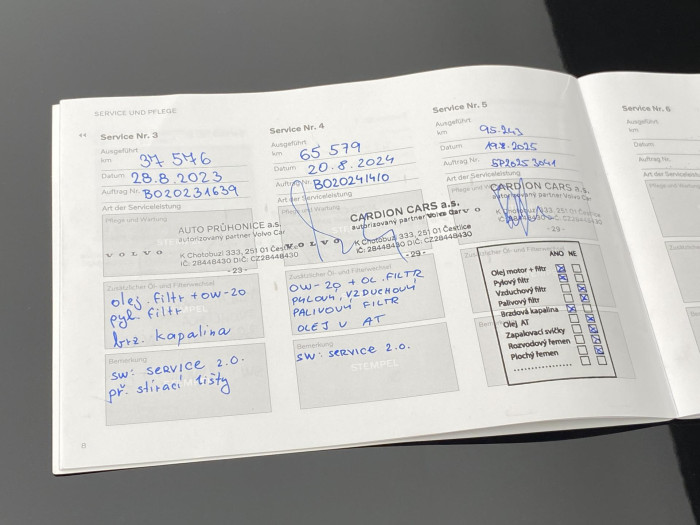 SERVICE UND PFLEGE
Service Nr. 3
Ausgeführt
km 37 576
Datum 28.8.2023
Auftrag Nr. BO20231639
Art der Serviceleistung
Pflege und Wartung
AUTO PRŮHONICE a.s.
autorizovaný partner Volvo Car
VOLVO
K Chotobuzi 333, 251 01 Čestlice
IČ: 28448430 DIČ: CZ28448430
- 23 -
Zusätzlicher Öl- und Filterwechsel
olej. filtr + OW-20
pyl. filtr
brz. kapalina
Bemerkung
SW: SERVICE 2.0.
př. stírací lišty
8
Service Nr. 4
Ausgeführt
km 65 579
Datum 20.8.2024
Auftrag Nr. BO20241410
Art der Serviceleistung
Pflege und Wartung
CARDION CARS a.s.
autorizovaný partner Volvo Car
VOLVO
K Chotobuzi 333, 251 01 Čestlice
IČ: 28448430 DIČ: CZ28448430
- 29 -
Zusätzlicher Öl- und Filterwechsel
OW-20 + OL. FILTR
PYLOVÝ, VZDUCHOVÝ
PALIVOVÝ FILTR
OLEJ V AT
Bemerkung
SW: SERVICE 2.0.
STEMPEL
Service Nr. 5
Ausgeführt
km 95.243
Datum 19.8.2025
Auftrag Nr. SP2025 3041
Art der Serviceleistung
Pflege und Wartung
CARDION CARS a.s.
autorizovaný partner Volvo Car
VOLVO
K Chotobuzi 333, 251 01 Čestlice
IČ: 28448430 DIČ: CZ28448430
- 29 -
ANO NE
Olej motor + filtr
Pylový filtr
Vzduchový filtr
Palivový filtr
Brzdová kapalina
Olej AT
Zapalovací svíčky
Rozvodový řemen
Plochý řemen
Service Nr. 6
Ausgeführt
km
Datum
Auftrag Nr.